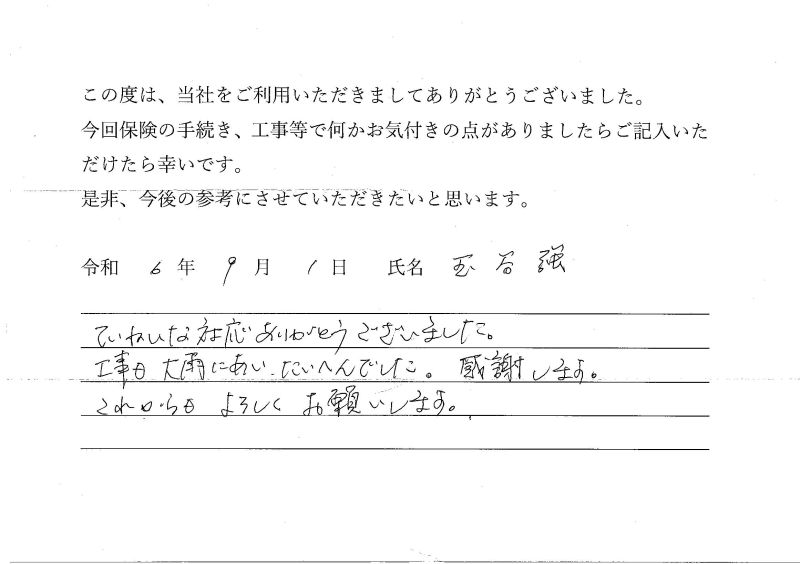 この度は、当社をご利用いただきましてありがとうございました。
今回保険の手続き、工事等で何かお気付きの点がありましたらご記入いた
だけたら幸いです。
是非、今後の参考にさせていただきたいと思います。
令和 6 年 9 月 1 日 氏名 玉谷 強
ていねいな対応ありがとうございました。
工事も大雨にあい、たいへんでした。感謝します。
これからもよろしくお願いします。